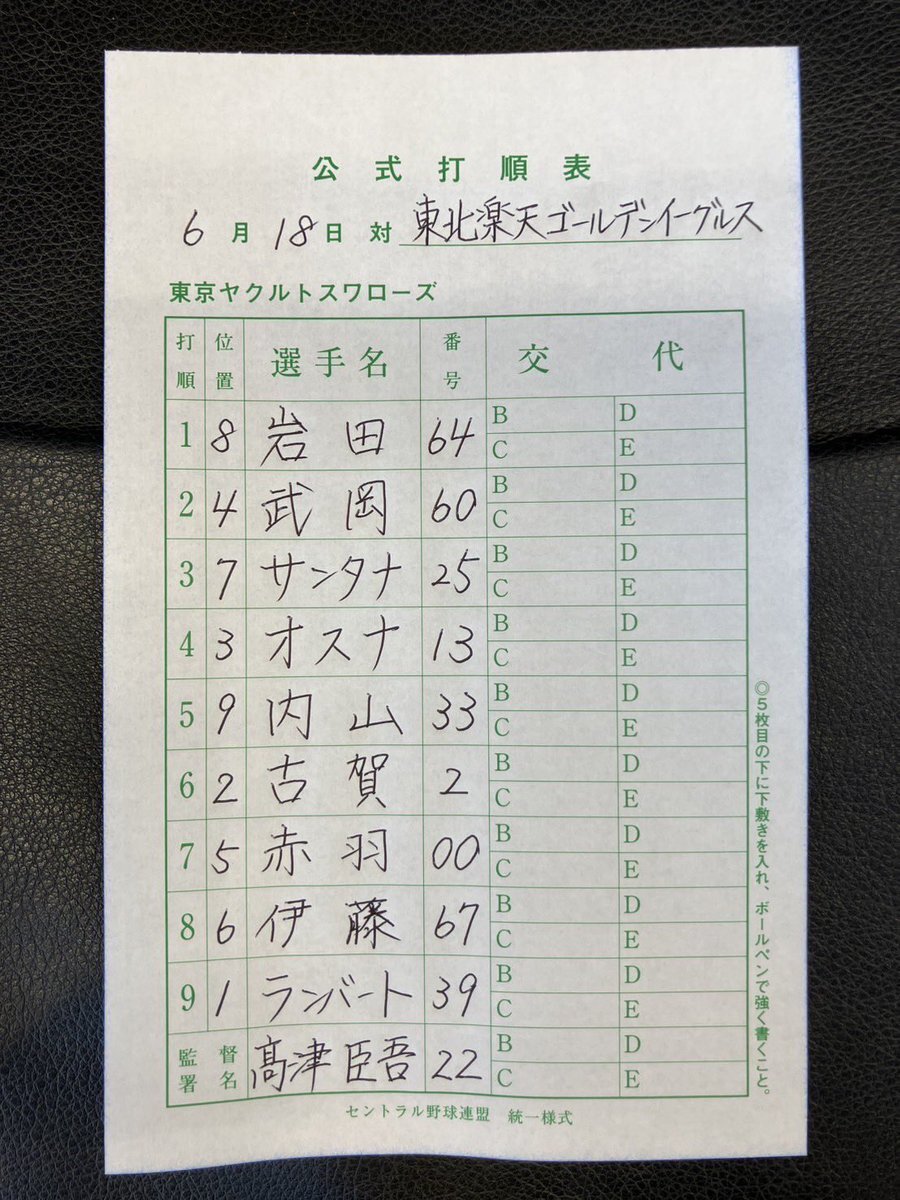 公式打順表
6月18日 対 東北楽天ゴールデンイーグルス
東京ヤクルトスワローズ
打順 位置 選手名 番号 交代
1 8 岩田 64 B D C E
2 4 武岡 60 B D C E
3 7 サンタナ 25 B D C E
4 3 オスナ 13 B D C E
5 9 内山 33 B D C E
6 2 古賀 2 B D C E
7 5 赤羽 00 B D C E
8 6 伊藤 67 B D C E
9 1 ランバート 39 B D C E
監督署名 髙津臣吾 22 B D C E
セントラル野球連盟 統一様式
◎5枚目の下に下敷きを入れ、ボールペンで強く書くこと。